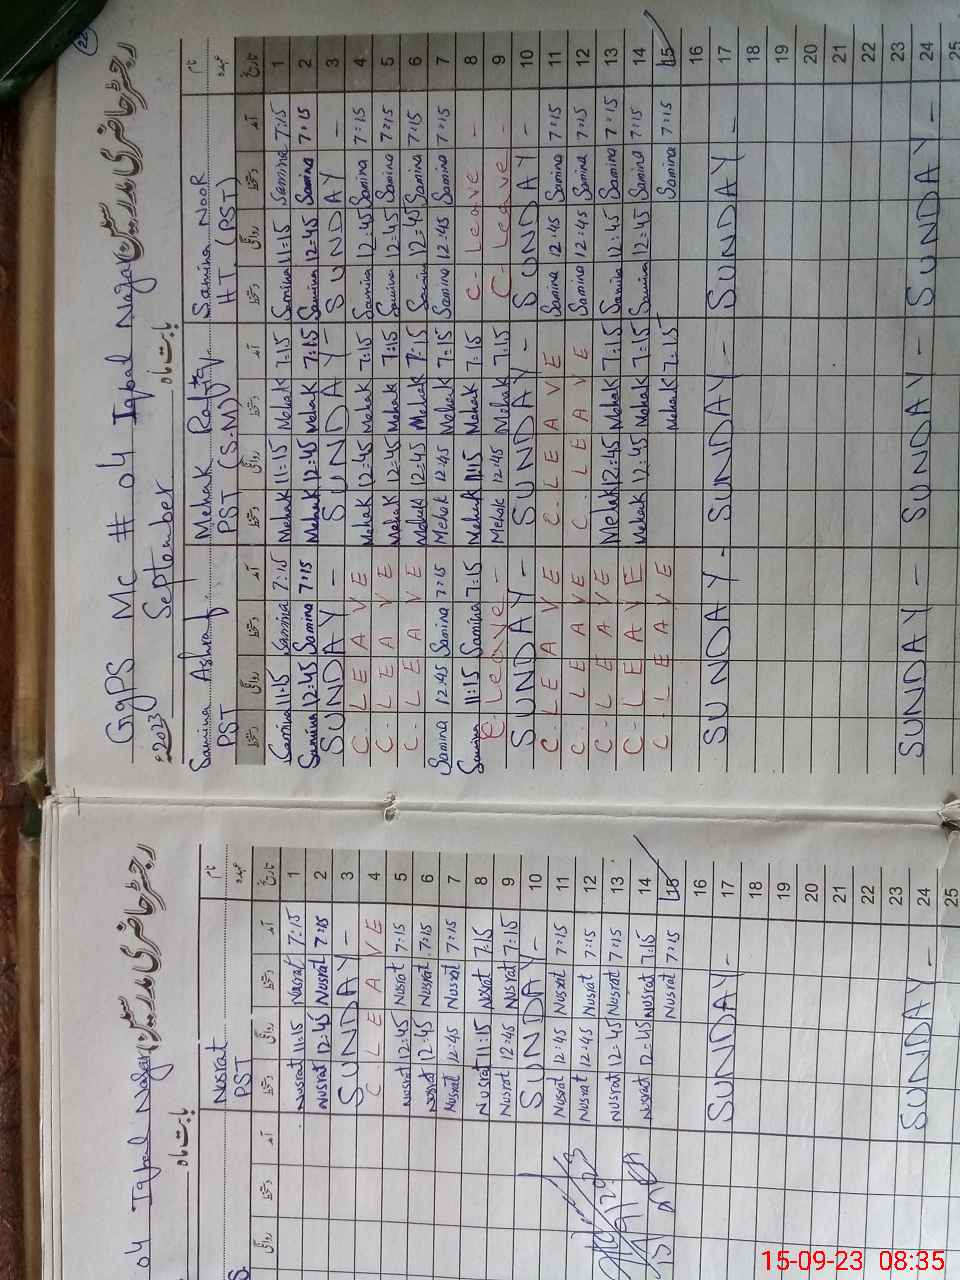 04 Iqbal Nagar رجسٹر حاضری مدرسین
بابت ماہ
Nusrat نام
S. PST عہدہ
روانگی دستخط آمد دستخط روانگی دستخط آمد تاریخ
Nusrat 11:15 Nusrat 7:15 1
Nusrat 12:45 Nusrat 7:15 2
SUNDAY - 3
C. LEAVE 4
Nusrat 12:45 Nusrat 7:15 5
Nusrat 12:45 Nusrat 7:15 6
Nusrat 12:45 Nusrat 7:15 7
Nusrat 11:15 Nusrat 7:15 8
Nusrat 12:45 Nusrat 7:15 9
SUNDAY - 10
Nusrat 12:45 Nusrat 7:15 11
Nusrat 12:45 Nusrat 7:15 12
Nusrat 12:45 Nusrat 7:15 13
Nusrat 12:45 Nusrat 7:15 14
Nusrat 7:15 15
16
SUNDAY - 17
18
19
20
21
22
23
SUNDAY - 24
25
22
GGPS MC # 04 Iqbal Nagar رجسٹر حاضری مدرسین
2023 September بابت ماہ
Samina Ashraf Mehak Rafiq Samina NooR نام
PST PST (S.M) HT (PST) عہدہ
دستخط روانگی دستخط آمد دستخط روانگی دستخط آمد دستخط روانگی دستخط آمد تاریخ
Samina 11:15 Samina 7:15 Mehak 11:15 Mehak 7:15 Samina 11:15 Samina 7:15 1
Samina 12:45 Samina 7:15 Mehak 12:45 Mehak 7:15 Samina 12:45 Samina 7:15 2
SUNDAY - SUNDAY - SUNDAY - 3
C. LEAVE Mehak 12:45 Mehak 7:15 Samina 12:45 Samina 7:15 4
C. LEAVE Mehak 12:45 Mehak 7:15 Samina 12:45 Samina 7:15 5
C. LEAVE Mehak 12:45 Mehak 7:15 Samina 12:45 Samina 7:15 6
Samina 12:45 Samina 7:15 Mehak 12:45 Mehak 7:15 Samina 12:45 Samina 7:15 7
Samina 11:15 Samina 7:15 Mehak 11:15 Mehak 7:15 C- Leave - 8
C- Leave - Mehak 12:45 Mehak 7:15 C- Leave - 9
SUNDAY - SUNDAY - SUNDAY - 10
C. LEAVE C. LEAVE Samina 12:45 Samina 7:15 11
C. LEAVE C. LEAVE Samina 12:45 Samina 7:15 12
C. LEAVE Mehak 12:45 Mehak 7:15 Samina 12:45 Samina 7:15 13
C. LEAVE Mehak 12:45 Mehak 7:15 Samina 12:45 Samina 7:15 14
C. LEAVE Mehak 7:15 Samina 7:15 15
16
SUNDAY - SUNDAY - SUNDAY - 17
18
19
20
21
22
23
SUNDAY - SUNDAY - SUNDAY - 24
25
15-09-23 08:35